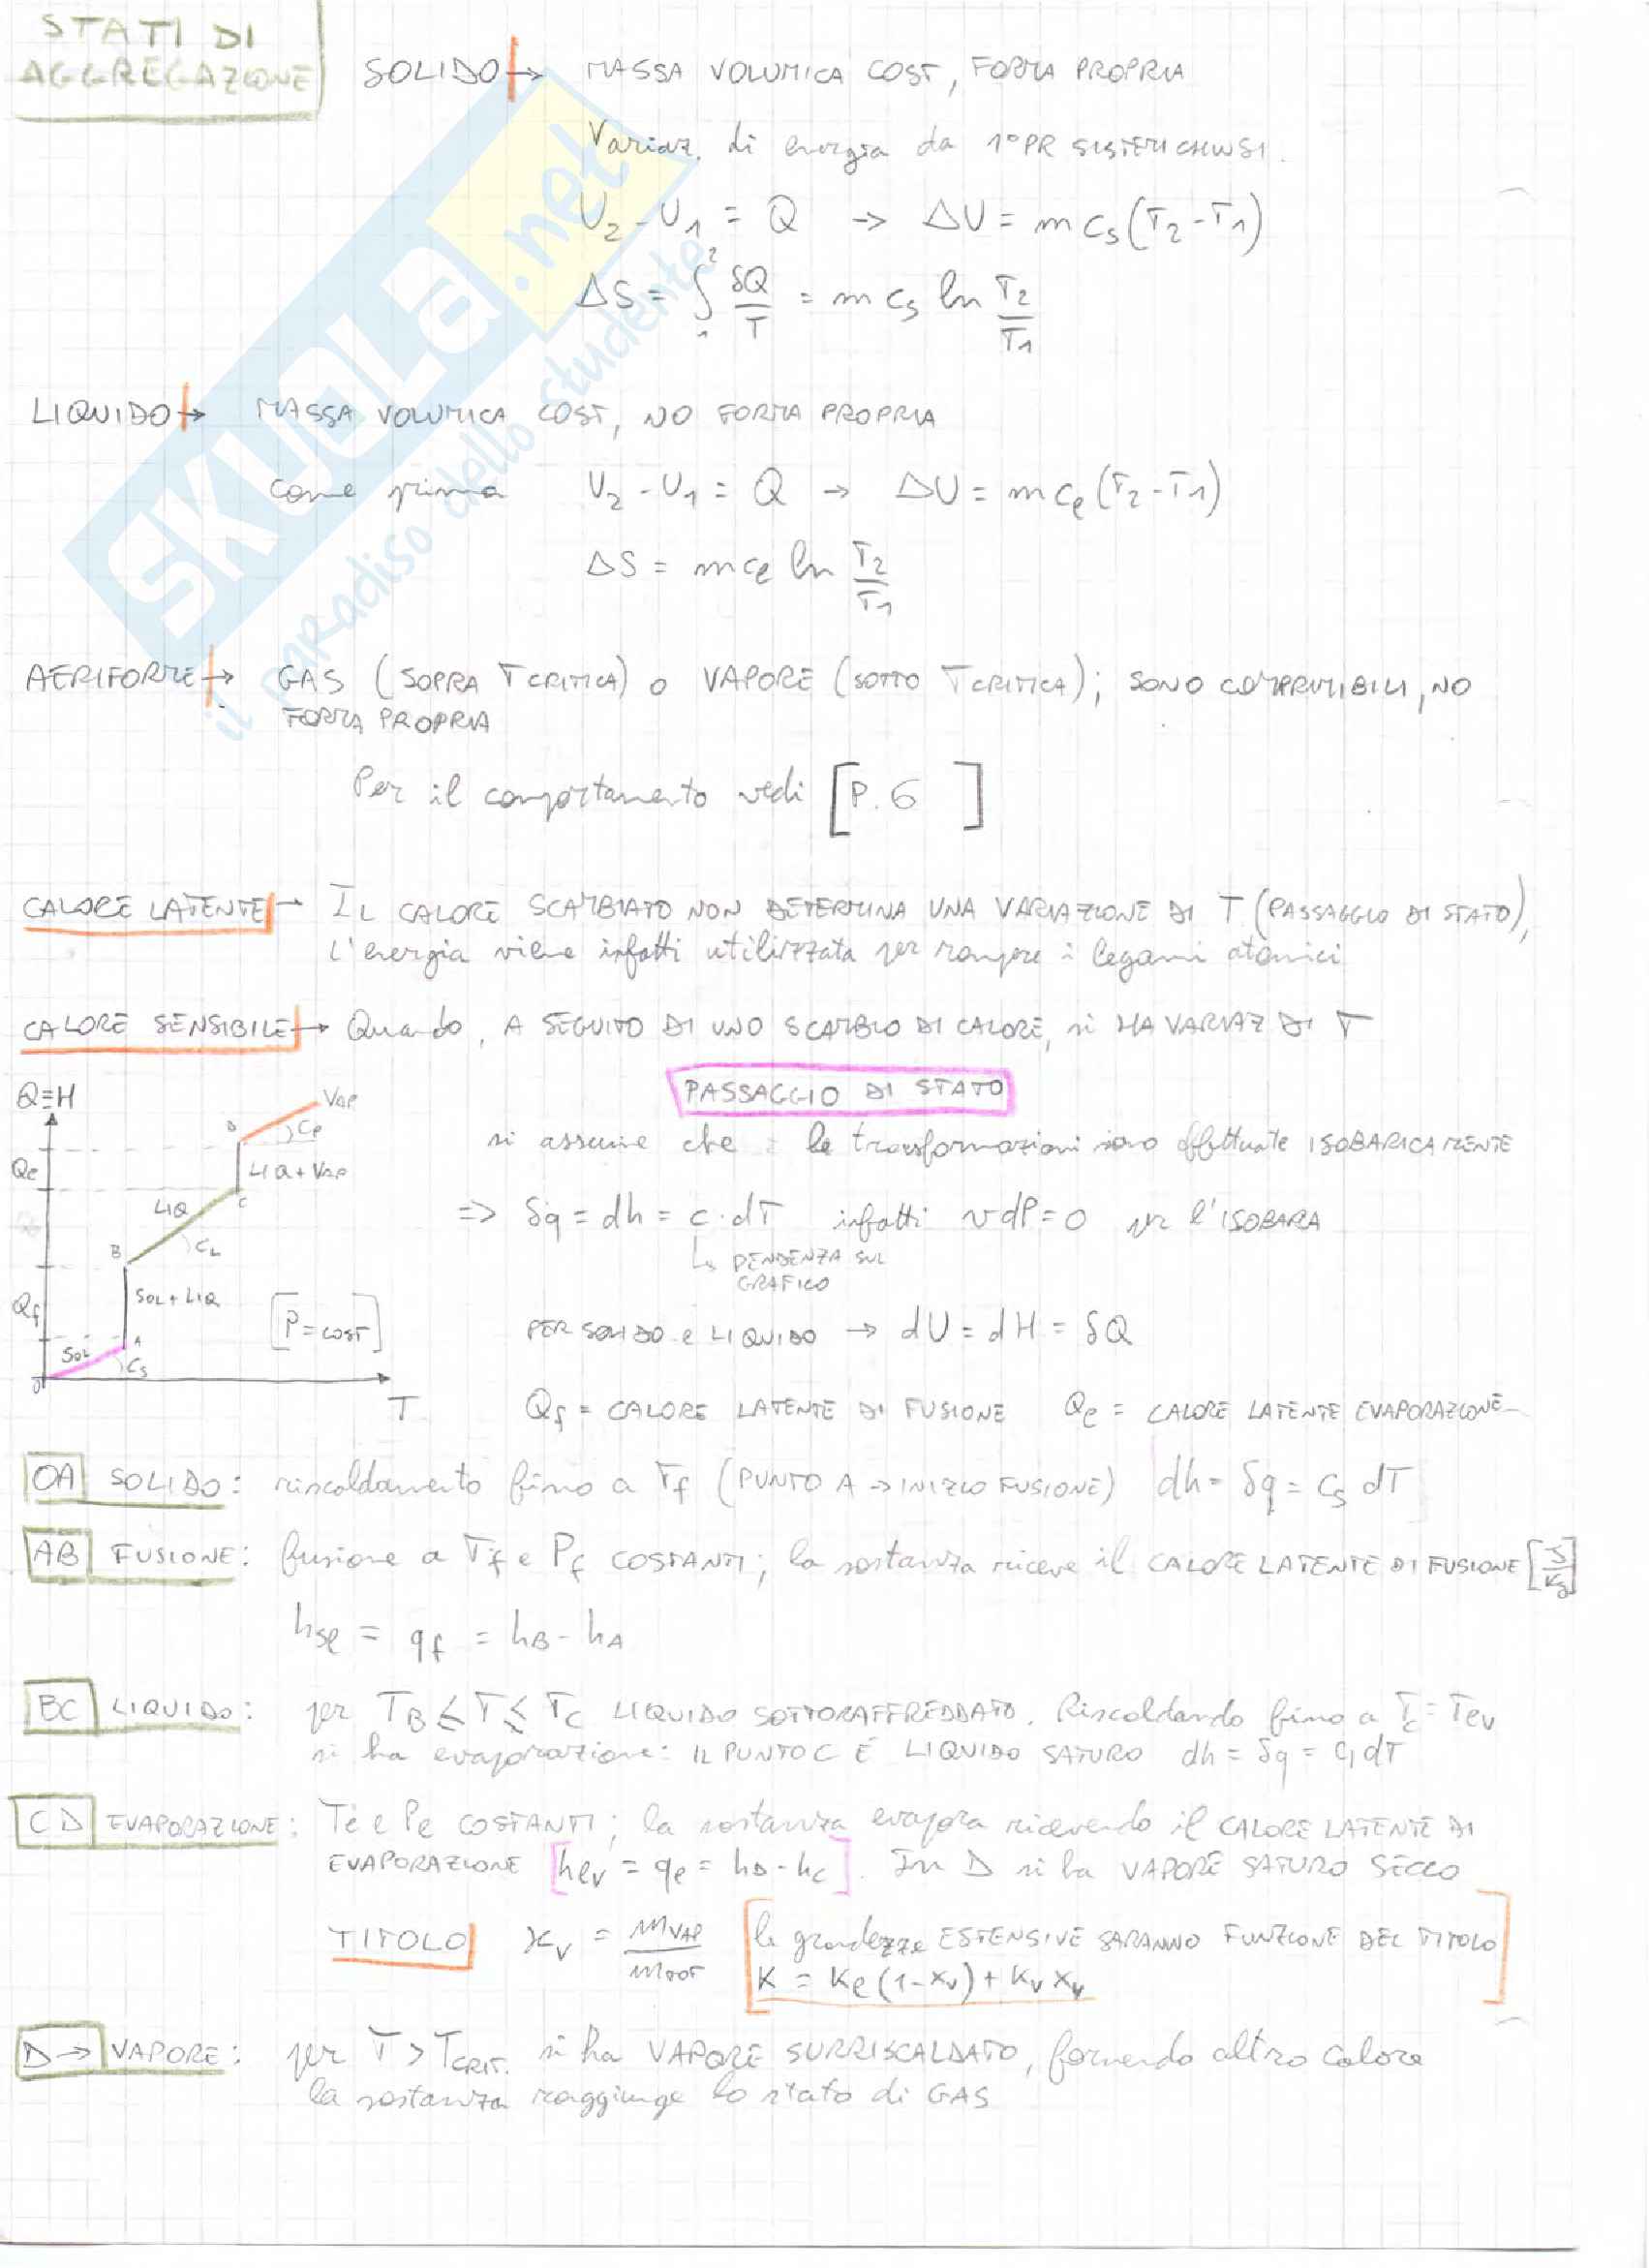 STATI DI
AGGREGAZIONE
SOLIDO → MASSA VOLUMICA COST, FORMA PROPRIA
Variaz. di energia da 1°PR SISTEMI CHIUSI.
U₂-U₁ = Q → ΔU = m cs (T₂-T₁)
ΔS = ∫₁² δQ/T = m cs ln T₂/T₁
LIQUIDO → MASSA VOLUMICA COST, NO FORMA PROPRIA
come prima U₂-U₁ = Q → ΔU = m cl (T₂-T₁)
ΔS = m cl ln T₂/T₁
AERIFORME → GAS (SOPRA T CRITICA) o VAPORE (SOTTO T CRITICA); SONO COMPRIMIBILI, NO
FORMA PROPRIA
Per il comportamento vedi [P. 6 ]
CALORE LATENTE → IL CALORE SCAMBIATO NON DETERMINA UNA VARIAZIONE DI T (PASSAGGIO DI STATO),
l'energia viene infatti utilizzata per rompere i legami atomici
CALORE SENSIBILE → Quando, A SEGUITO DI UNO SCAMBIO DI CALORE, si HA VARIAZ DI T
PASSAGGIO DI STATO
si assume che le trasformazioni sono effettuate ISOBARICAMENTE
⇒ δq = dh = c·dT infatti vdP=0 per l'ISOBARA
↳ PENDENZA SUL
GRAFICO
PER SOLIDO e LIQUIDO → dU = dH = δQ
Qf = CALORE LATENTE DI FUSIONE Qe = CALORE LATENTE EVAPORAZIONE
Q≡H
VAP
D
Cp
Qe
LIQ+VAP
C
LIQ
CL
B
Qf
SOL+LIQ
[P=COST]
A
SOL
CS
O
T
OA SOLIDO: riscaldamento fino a Tf (PUNTO A → INIZIO FUSIONE) dh = δq = cs dT
AB FUSIONE: fusione a Tf e Pf COSTANTI; la sostanza riceve il CALORE LATENTE DI FUSIONE [J/Kg]
hsl = qf = hB - hA
BC LIQUIDO: per TB ≤ T ≤ TC LIQUIDO SOTTORAFFREDDATO. Riscaldando fino a Tc = Tev
si ha evaporazione: IL PUNTO C È LIQUIDO SATURO dh = δq = cl dT
CD EVAPORAZIONE: Te e Pe COSTANTI; la sostanza evapora ricevendo il CALORE LATENTE DI
EVAPORAZIONE [hev = qe = hD - hC]. In D si ha VAPORE SATURO SECCO
TITOLO xv = mVAP/mTOT [le grandezze ESTENSIVE SARANNO FUNZIONE DEL TITOLO
K = Kl (1-xv) + Kv xv]
D→ VAPORE: per T > TCRIT. si ha VAPORE SURRISCALDATO, fornendo altro calore
la sostanza raggiunge lo stato di GAS
SKUOLA.net
il paradiso dello studente